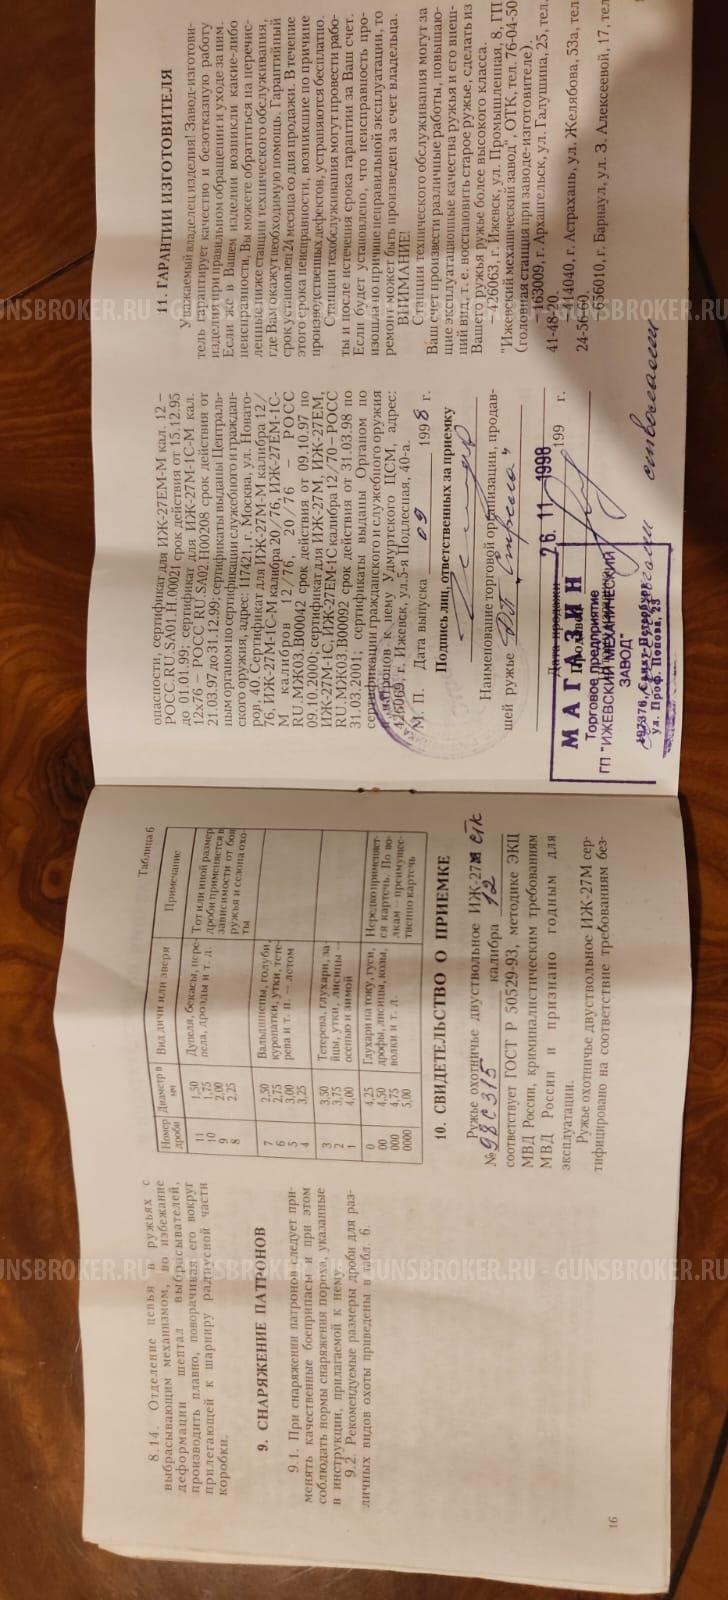 8.14. Отделение цевья в ружьях с
выбрасывающим механизмом, во избежание
деформации шептал выбрасывателей,
производить плавно, поворачивая его вокруг
прилегающей к шарниру радиусной части
коробки.
9. СНАРЯЖЕНИЕ ПАТРОНОВ
9.1. При снаряжении патронов следует при-
менять качественные боеприпасы и при этом
соблюдать нормы снаряжения пороха, указанные
в инструкции, прилагаемой к нему.
9.2. Рекомендуемые размеры дроби для раз-
личных видов охоты приведены в табл. 6.
16
Таблица 6
Номер дроби Диаметр в мм Вид дичи или зверя Примечание
11 1,50 Дупеля, бекасы, пере- Тот или иной размер
10 1,75 пела, дрозды и т. д. дроби применяется в
9 2,00 зависимости от боя
8 2,25 ружья и сезона охо-
ты
7 2,50 Вальдшнепы, голуби,
6 2,75 куропатки, утки, тете-
5 3,00 рева и т. п. – летом
4 3,25
3 3,50 Тетерева, глухари, за-
2 3,75 йцы, утки, лисицы –
1 4,00 осенью и зимой
0 4,25 Глухари на току, гуси, Нередко применяет-
00 4,50 дрофы, лисицы, козы, ся картечь. По во-
000 4,75 волки и т. д. лкам – преимущес-
0000 5,00 твенно картечь
10. СВИДЕТЕЛЬСТВО О ПРИЕМКЕ
Ружье охотничье двуствольное ИЖ-27М
№ 98С315 калибра 12
соответствует ГОСТ Р 50529-93, методике ЭКЦ
МВД России, криминалистическим требованиям
МВД России и признано годным для
эксплуатации.
Ружье охотничье двуствольное ИЖ-27М сер-
тифицировано на соответствие требованиям без-
опасности, сертификат для ИЖ-27ЕМ-М кал. 12 –
РОСС.RU.SA01.H.00021 срок действия от 15.12.95
до 01.01.99; сертификат для ИЖ-27М-1С-М кал.
12x76 – РОСС.RU.SA02.H00208 срок действия от
21.03.97 до 31.12.99; сертификаты выданы Централь-
ным органом по сертификации служебного и граждан-
ского оружия, адрес: 117421, г. Москва, ул. Новато-
ров, 40. Сертификат для ИЖ-27М-М калибра 12/
76, ИЖ-27М-1С-М калибра 20/76, ИЖ-27ЕМ-1С-
М калибров 12/76, 20/76 – РОСС
RU.МЖ03.В00042 срок действия от 09.10.97 по
09.10.2000; сертификат для ИЖ-27М, ИЖ-27ЕМ,
ИЖ-27М-1С, ИЖ-27ЕМ-1С калибра 12/70 – РОСС
RU.МЖ03.В00092 срок действия от 31.03.98 по
31.03.2001; сертификаты выданы Органом по
сертификации гражданского и служебного оружия
и патронов к нему Удмуртского ЦСМ, адрес:
426069, г. Ижевск, ул. 5-я Подлесная, 40-а.
М. П. Дата выпуска 09 1998 г.
Подпись лиц, ответственных за приемку
Наименование торговой организации, продав-
шей ружье „Стрела"
Дата продажи 26. 11. 1998 199 г.
МАГАЗИН
Торговое предприятие
ГП "ИЖЕВСКИЙ МЕХАНИЧЕСКИЙ
ЗАВОД"
197376, Санкт-Петербург
ул. Проф. Попова, 23
стволами
11. ГАРАНТИИ ИЗГОТОВИТЕЛЯ
Уважаемый владелец изделия! Завод-изготови-
тель гарантирует качество и безотказную работу
изделия при правильном обращении и уходе за ним.
Если же в Вашем изделии возникли какие-либо
неисправности, Вы можете обратиться на перечис-
ленные ниже станции технического обслуживания,
где Вам окажут необходимую помощь. Гарантийный
срок установлен 24 месяца со дня продажи. В течение
этого срока неисправности, возникшие по причине
производственных дефектов, устраняются бесплатно.
Станции техобслуживания могут провести рабо-
ты и после истечения срока гарантии за Ваш счет.
Если будет установлено, что неисправность про-
изошла по причине неправильной эксплуатации, то
ремонт может быть произведен за счет владельца.
ВНИМАНИЕ!
Станции технического обслуживания могут за
Ваш счет произвести различные работы, повышаю-
щие эксплуатационные качества ружья и его внеш-
ний вид, т. е. восстановить старое ружье, сделать из
Вашего ружья ружье более высокого класса.
– 426063, г. Ижевск, ул. Промышленная, 8, ГП
"Ижевский механический завод", ОТК, тел. 76-04-50
(головная станция при заводе-изготовителе).
– 163009, г. Архангельск, ул. Галушина, 25, тел.
41-48-20.
– 414040, г. Астрахань, ул. Желябова, 53а, тел.
24-56-60.
– 656010, г. Барнаул, ул. З. Алексеевой, 17, тел.
GUNSBROKER.RU - GUNSBROKER.RU - GUNSBROKER.RU
GUNSBROKER.RU - GUNSBROKER.RU - GUNSBROKER.RU